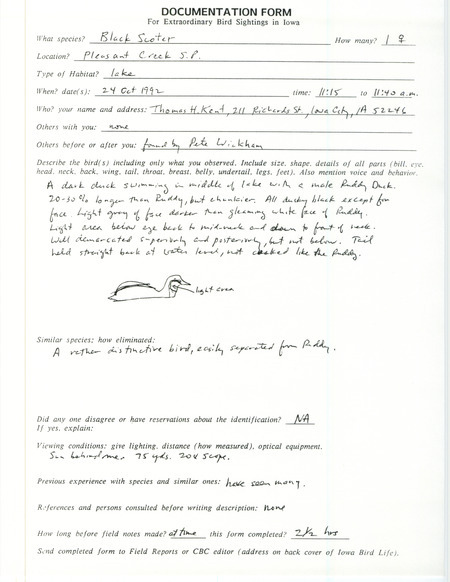 DOCUMENTATION FORM
For Extraordinary Bird Sightings in Iowa
What species? Black Scoter How many? 1 ♀
Location? Pleasant Creek S.P.
Type of Habitat? lake
When? date(s): 24 Oct 1992 time: 11:15 to 11:40 a.m.
Who? your name and address: Thomas H. Kent, 211 Richards St., Iowa City, IA 52246
Others with you: none
Others before or after you: found by Pete Wickham
Describe the bird(s) including only what you observed. Include size, shape, details of all parts (bill, eye,
head, neck, back, wing, tail, throat, breast, belly, undertail, legs, feet). Also mention voice and behavior.
A dark duck swimming in middle of lake with a male Ruddy Duck.
20-30% longer than Ruddy, but chunkier. All dusky black except for
face. Light gray of face darker than gleaming white face of Ruddy.
Light area below eye back to midneck and down to front of neck.
Well demarcated superiorly and posteriorly, but not below. Tail
held straight back at water level, not cocked like the Ruddy.
light area
Similar species; how eliminated:
A rather distinctive bird, easily separated from Ruddy.
Did any one disagree or have reservations about the identification? NA
If yes, explain:
Viewing conditions: give lighting, distance (how measured), optical equipment.
Sun behind me. 75 yds. 20X Scope.
Previous experience with species and similar ones: have seen many.
References and persons consulted before writing description: none
How long before field notes made? at time this form completed? 2½ hrs
Send completed form to Field Reports or CBC editor (address on back cover of Iowa Bird Life).